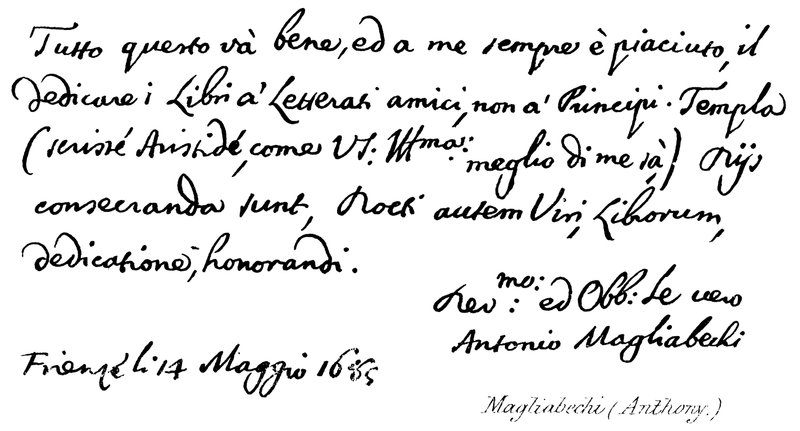 Tutto questo và bene, ed a me sempre è piaciuto, il
dedicare i Libri a' Letterati amici, non a' Principi. Templa
(scrisse Aristide, come VS: Illma: meglio di me sà) Dijs
consecranda sunt, Docti autem Viri, Librorum,
dedicatione, honorandi.
Devmo: ed Obb: Se vero
Antonio Magliabechi
Firenze li 14 Maggio
Magliabechi (Anthony.)